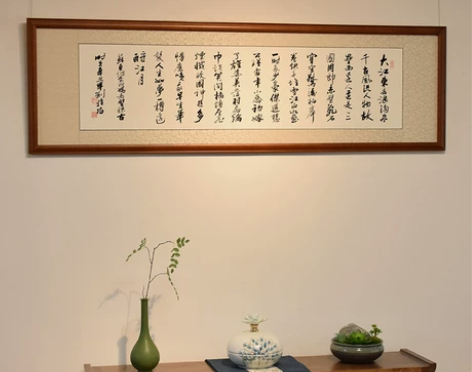 大江東去浪淘盡
千古風流人物故
壘西邊人道是三
國周郎赤壁亂石
穿空驚濤拍岸
捲起千堆雪江山如畫
一時多少豪傑遙想
公瑾當年小喬初嫁
了雄姿英發羽扇綸
巾談笑間檣櫓灰飛
煙滅故國神遊多
情應笑我早生華
髮人生如夢一樽還
酹江月